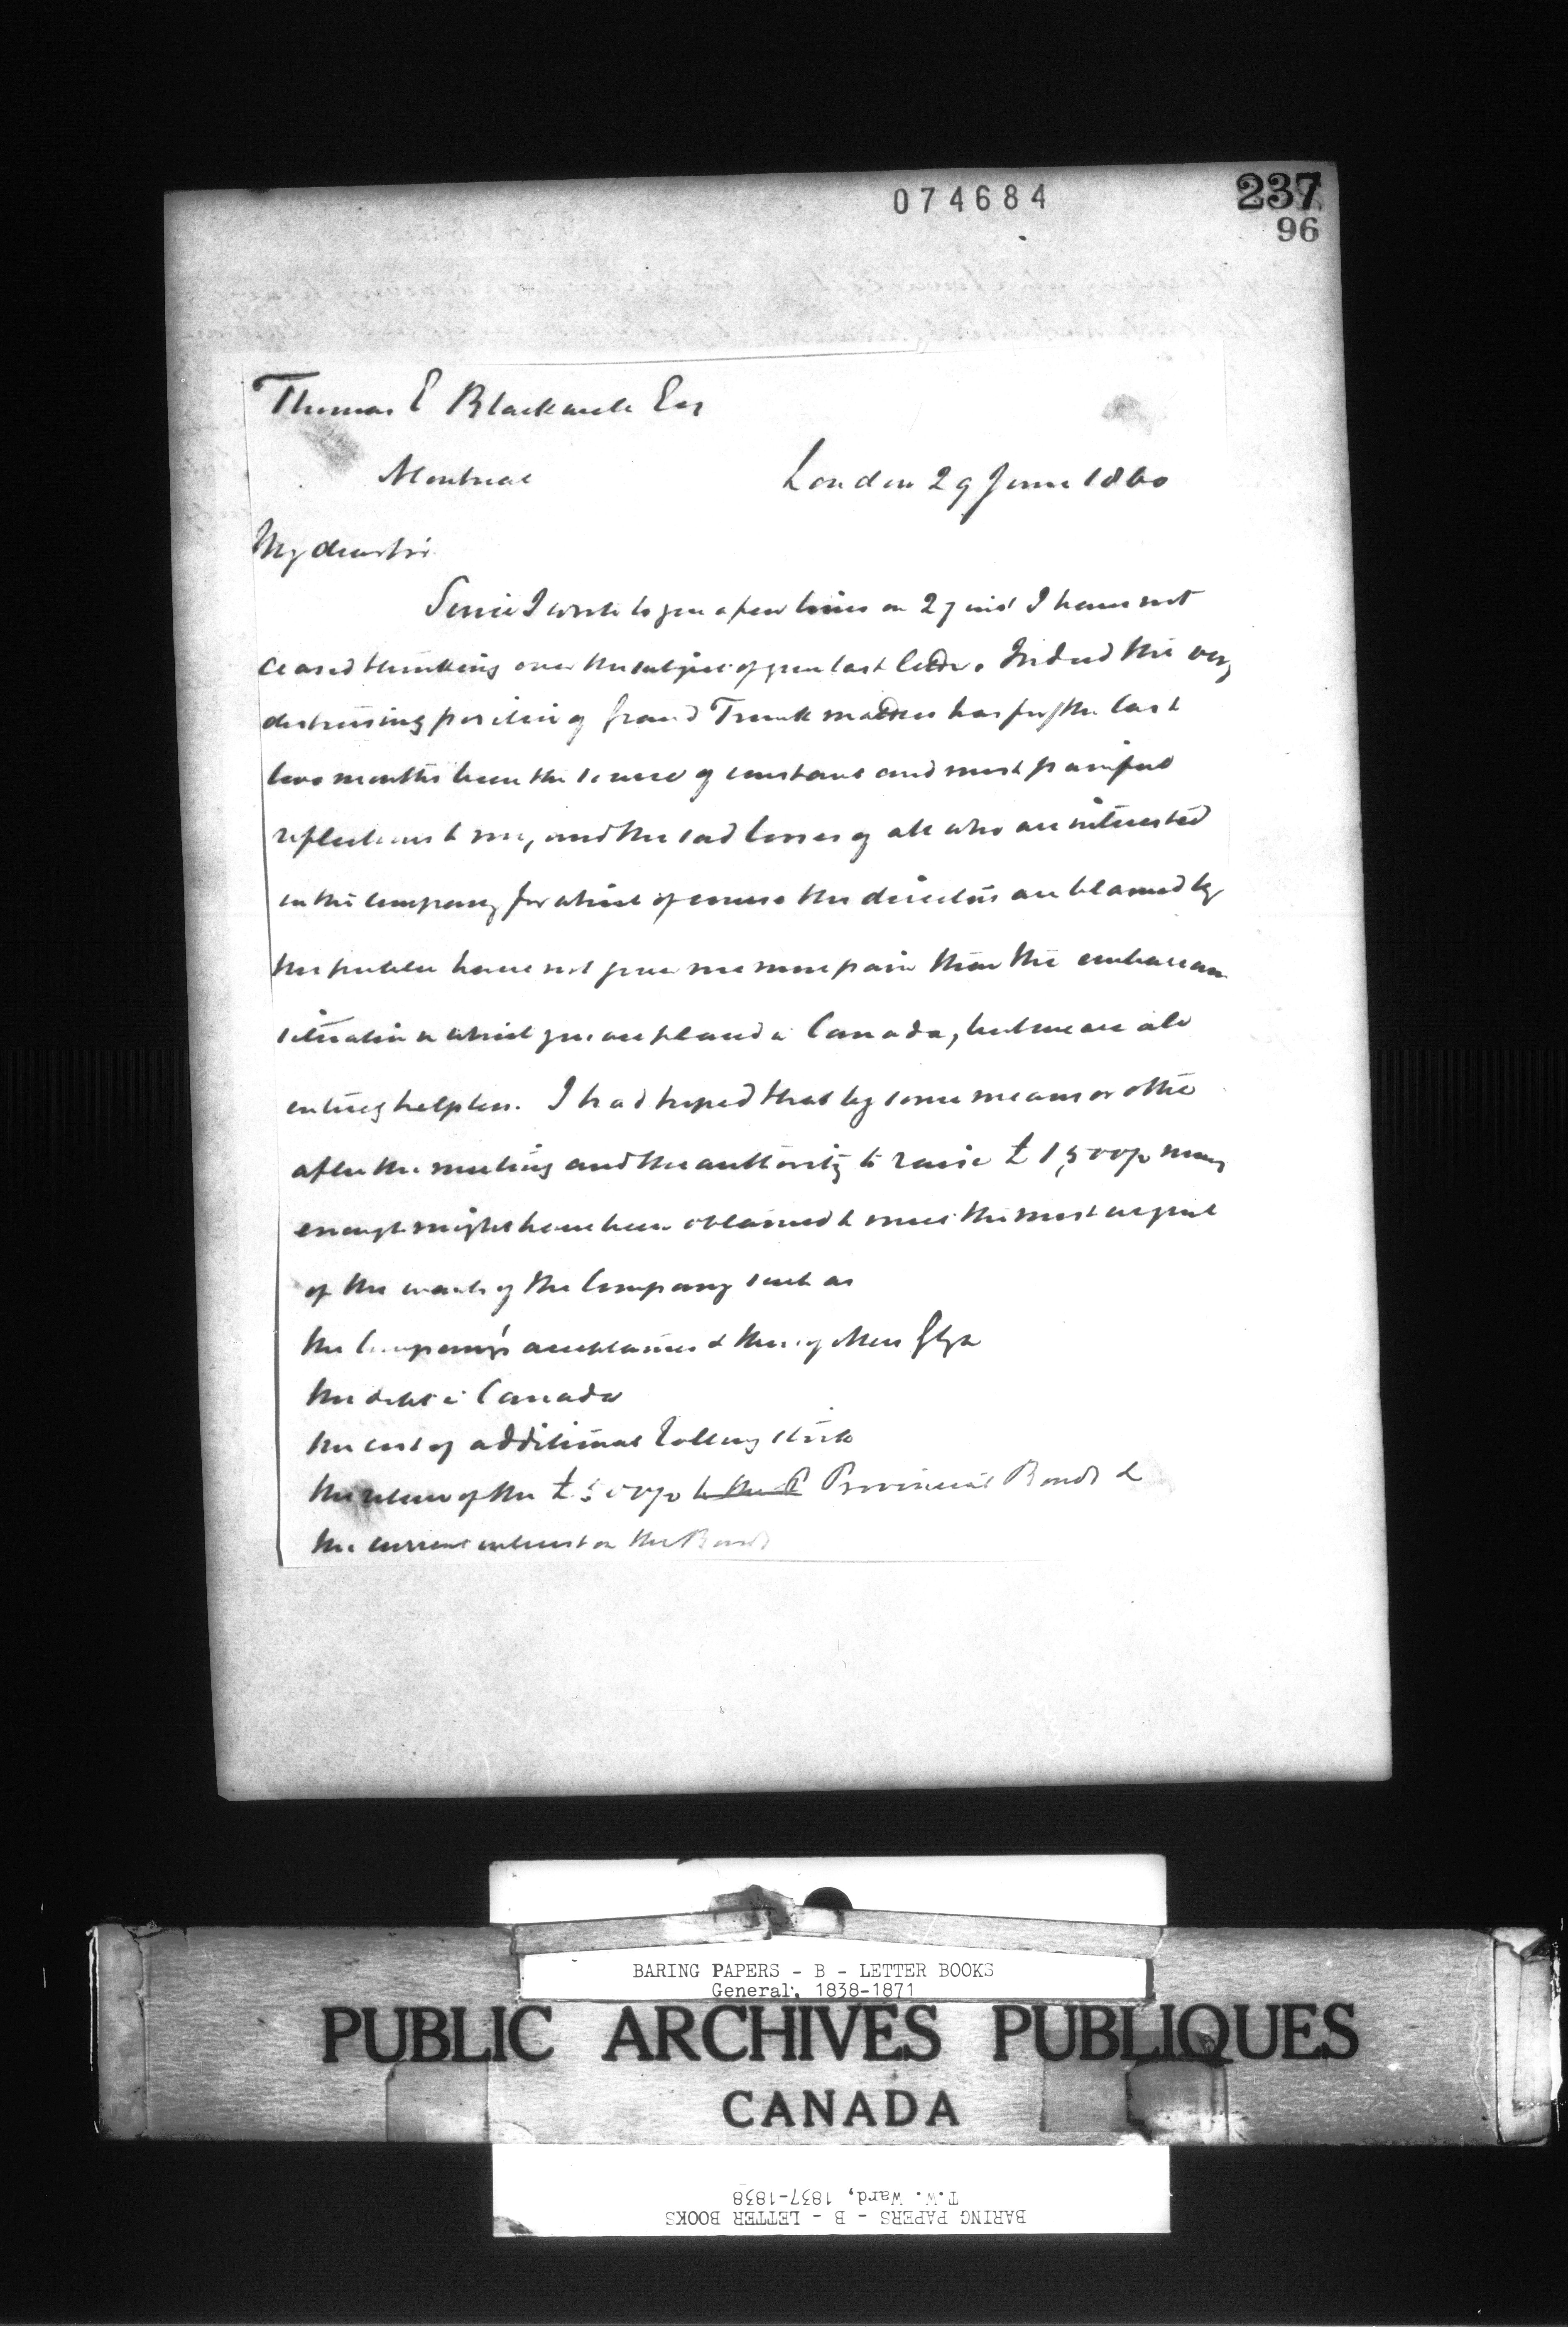 074684
237
96
Thomas E Blackwell Esq
Montreal
London 29 June 1860
My dear Sir
Since I wrote to you a few lines on 27 inst I have not
ceased thinking over the subject of your last letter. Indeed the very
distressing position of Grand Trunk matters has for the last
two months been the source of constant and most painful
reflections to me, and the sad losses of all who are interested
in the Company for which of course the directors are blamed by
the public have not given me more pain than the
situation in which you are placed in Canada, but we are all
entirely helpless. I had hoped that by some means or other
after the meeting and the authority to raise £ money
enough might have been obtained to meet the most urgent
of the wants of the Company such as
the Company's acceptances & those of Mess Glyn
the debt in Canada
the cost of additional Rolling Stock
the release of the £ to the P Provincial Bonds &
the current interest on the Bonds
BARING PAPERS - B - LETTER BOOKS
General, 1838-1871
PUBLIC ARCHIVES PUBLIQUES
CANADA
T.W. Ward, 1837-1838
BARING PAPERS - B - LETTER BOOKS